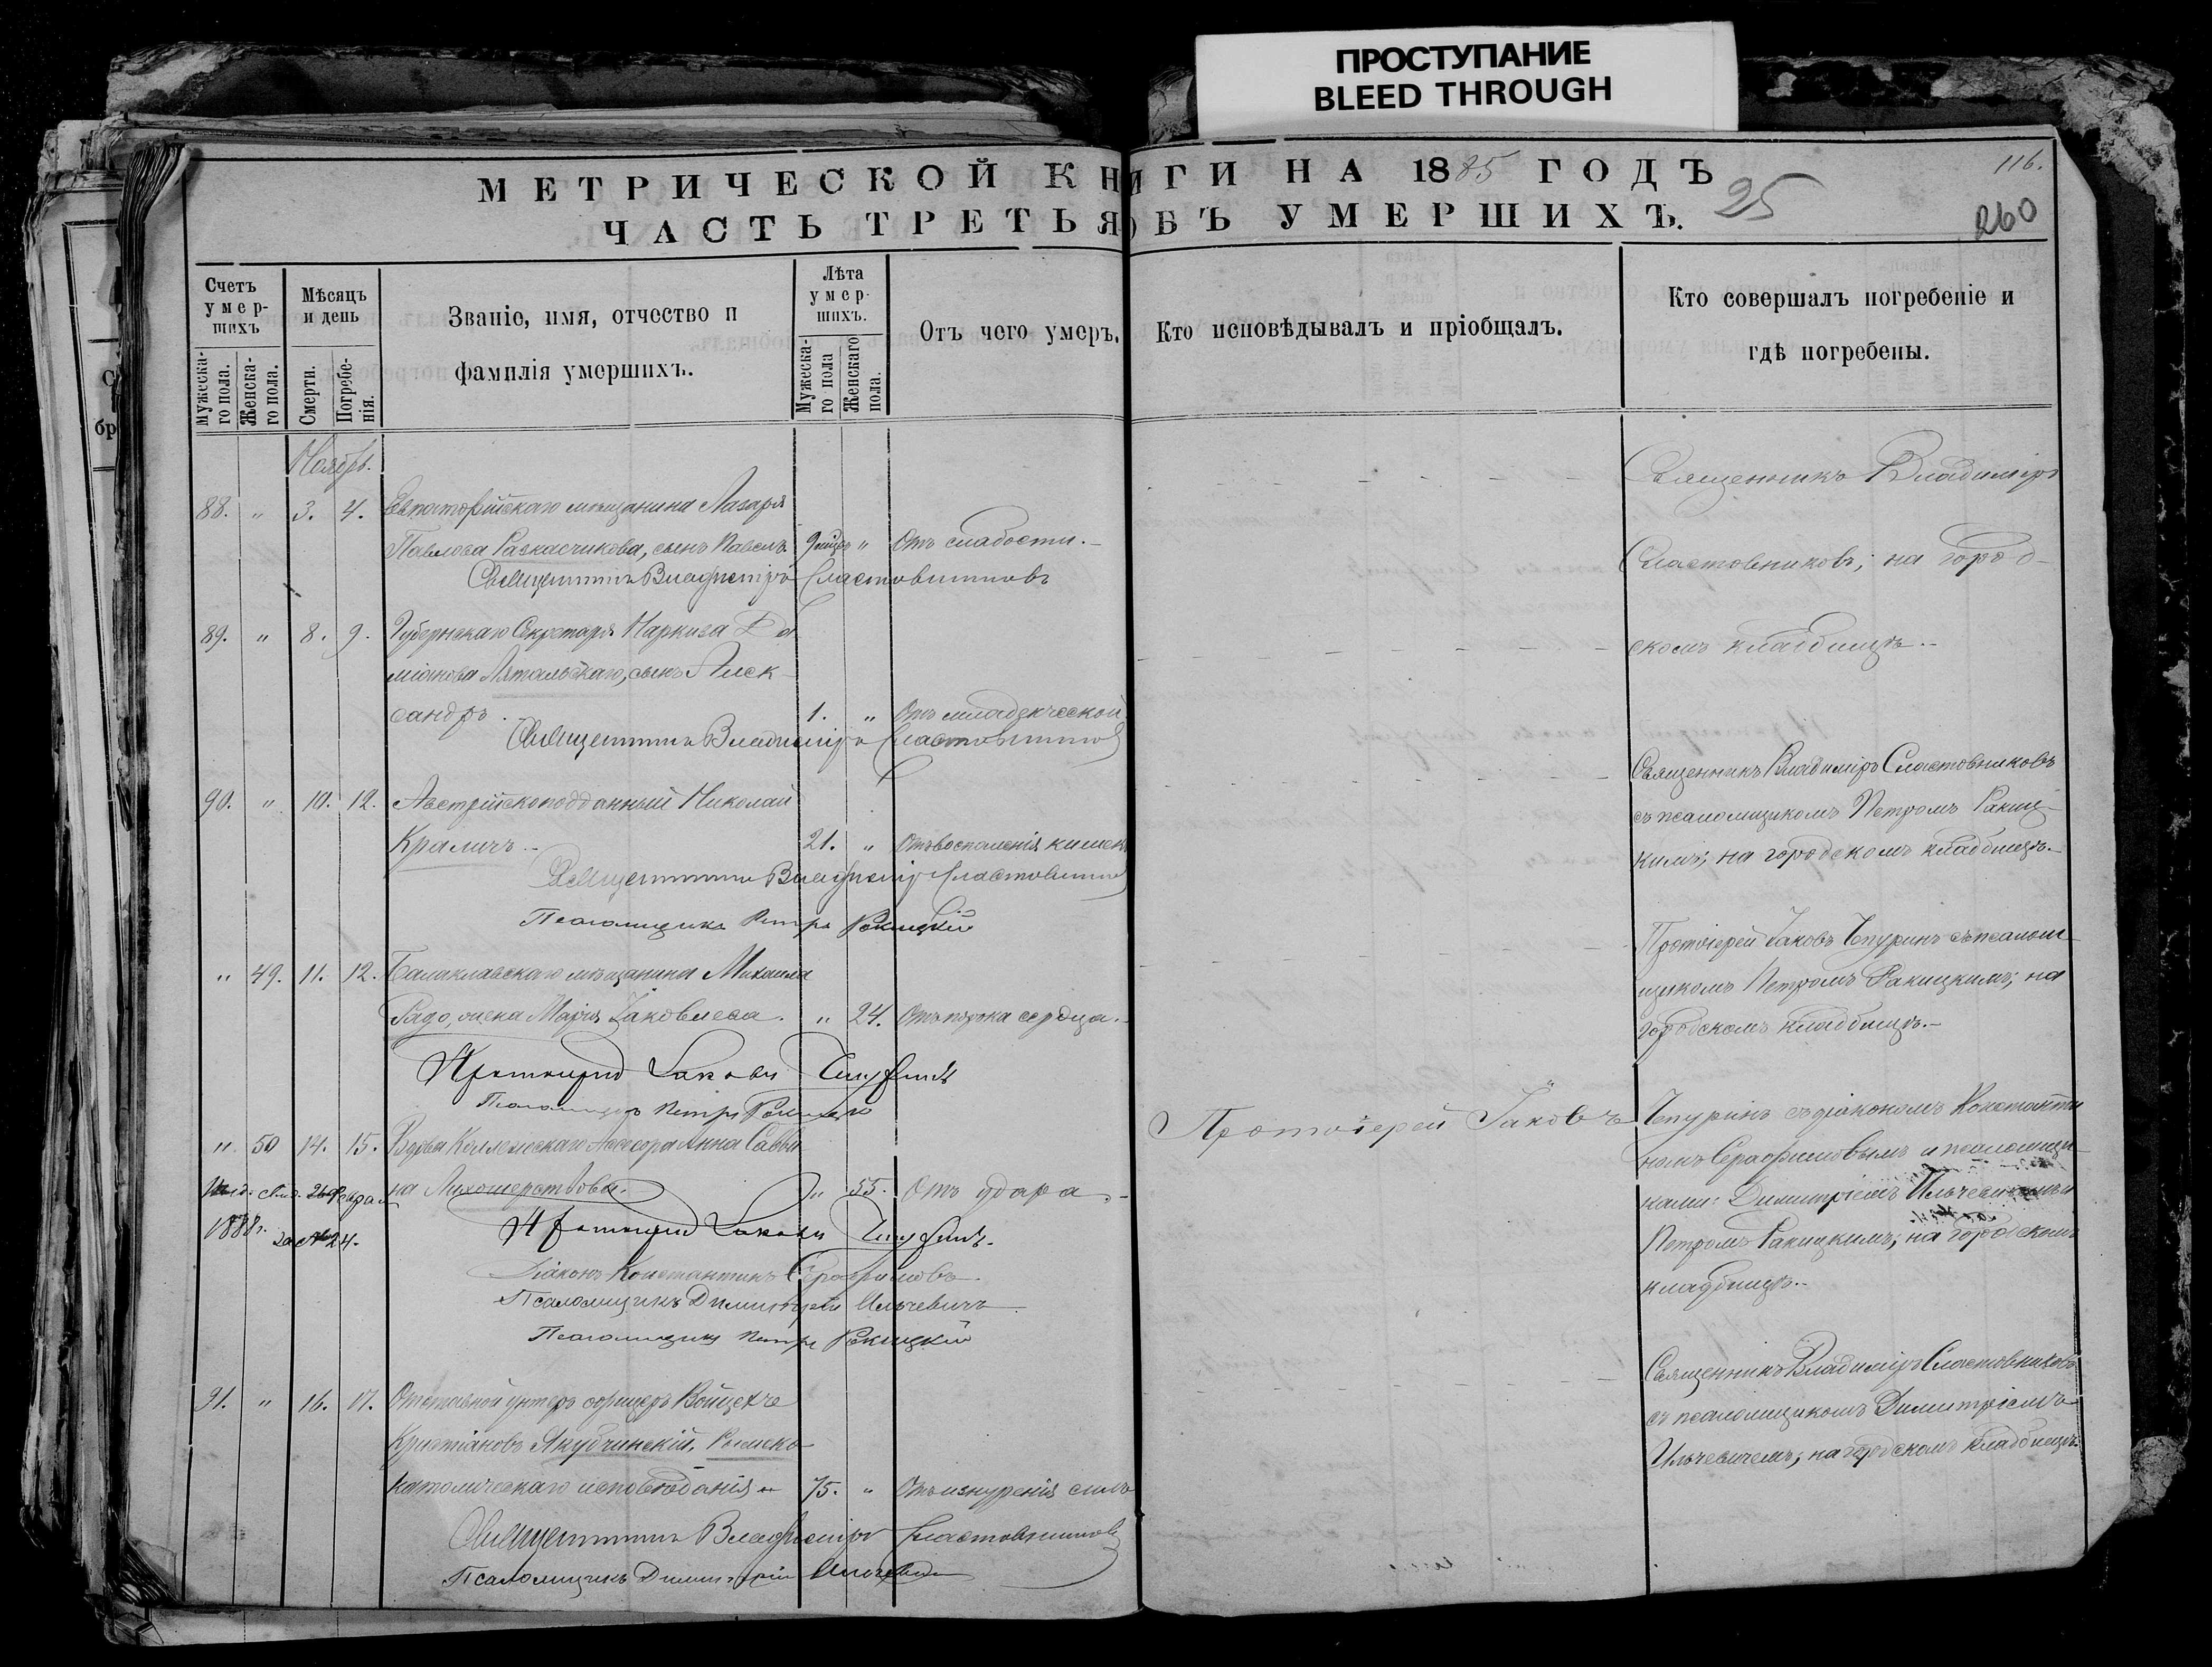 ПРОСТУПАНИЕ
BLEED THROUGH
МЕТРИЧЕСКОЙ КНИГИ НА 1885 ГОДЪ
116.
ЧАСТЬ ТРЕТЬЯ ОБЪ УМЕРШИХЪ.
25
260
Счетъ умер-шихъ
Мужеска-го пола.
Женска-го пола.
Мѣсяцъ и день
Смерти.
Погребе-нія.
Званіе, имя, отчество и
фамилія умершихъ.
Лѣта умер-шихъ.
Мужеска-го пола
Женскаго пола.
Отъ чего умеръ.
Кто исповѣдывалъ и пріобщалъ.
Кто совершалъ погребеніе и
гдѣ погребены.
Ноябрь.
88. " 3. 4. Евпаторійскаго мѣщанина Лазаря
Павлова Раскасчикова, сынъ Павелъ 9 мѣцъ " Отъ слабости.
Священникъ Владиміръ Сластовниковъ
Священникъ Владиміръ
Сластовниковъ; на город-
скомъ кладбищѣ.
89. " 8. 9. Губернскаго Секретаря Наркиза Да
міанова Лятальскаго, сынъ Алек-
сандръ. 1. " Отъ младенческой
Священникъ Владиміръ Сластовниковъ
90. " 10. 12. Австрійскоподданный Николай
Краличъ. 21. " Отъ воспаленія кишекъ
Священникъ Владиміръ Сластовниковъ
Псаломщикъ Петръ Ракицкій
Священникъ Владиміръ Сластовниковъ
съ псаломщикомъ Петромъ Ракиц-
кимъ; на городскомъ кладбищѣ.
" 49. 11. 12. Балаклавскаго мѣщанина Михаила
Радо, жена Марія Іаковлева. " 24. Отъ порока сердца.
Протоіерей Іаковъ Чепуринъ
Псаломщикъ Петръ Ракицкій
Протоіерей Іаковъ Чепуринъ съ псалом-
щикомъ Петромъ Ракицкимъ; на
городскомъ кладбищѣ.
" 50 14. 15. Вдова Коллежскаго Ассесора Анна Савви
на Лихошерстова. " 55. Отъ удара.
1888 г. за № 24.
Протоіерей Іаковъ Чепуринъ.
Діаконъ Константинъ Серафимовъ
Псаломщикъ Димитрій Ильчевичъ
Псаломщикъ Петръ Ракицкій
Протоіерей Іаковъ
Чепуринъ съ діакономъ Константи
номъ Серафимовымъ и псаломщи-
ками: Димитріемъ Ильчевичемъ и
Петромъ Ракицкимъ; на городскомъ
кладбищѣ.
91. " 16. 17. Отставной унтеръ офицеръ Войцехъ
Кристіановъ Якубчинскій, Римско-
католическаго исповѣданія 75. " Отъ изнуренія силъ
Священникъ Владиміръ Сластовниковъ
Псаломщикъ Димитрій Ильчевичъ
Священникъ Владиміръ Сластовниковъ
съ псаломщикомъ Димитріемъ
Ильчевичемъ; на городскомъ кладбищѣ.